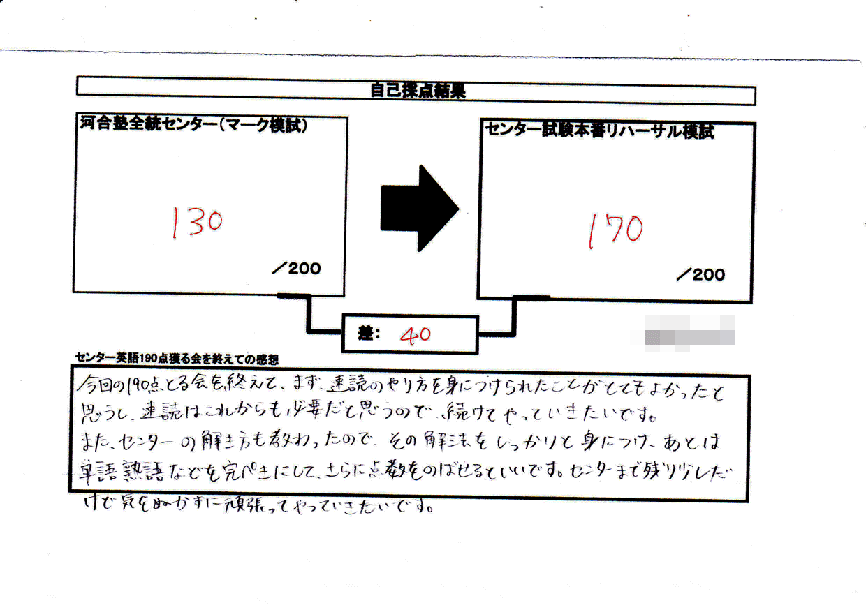 自己採点結果
河合塾全統センター（マーク模試）
130
／200
センター試験本番リハーサル模試
170
／200
差： 40
センター英語190点獲る会を終えての感想
今回の190点とる会を終えて、まず、速読のやり方を身につけられたことがとてもよかったと
思うし、速読はこれからも必要だと思うので、続けてやっていきたいです。
また、センターの解き方も教わったので、その解法をしっかりと身につけ、あとは
単語熟語などを完ペキにして、さらに点数をのばせるといいです。センターまで残り少しだ
けで気をぬかずに頑張ってやっていきたいです。